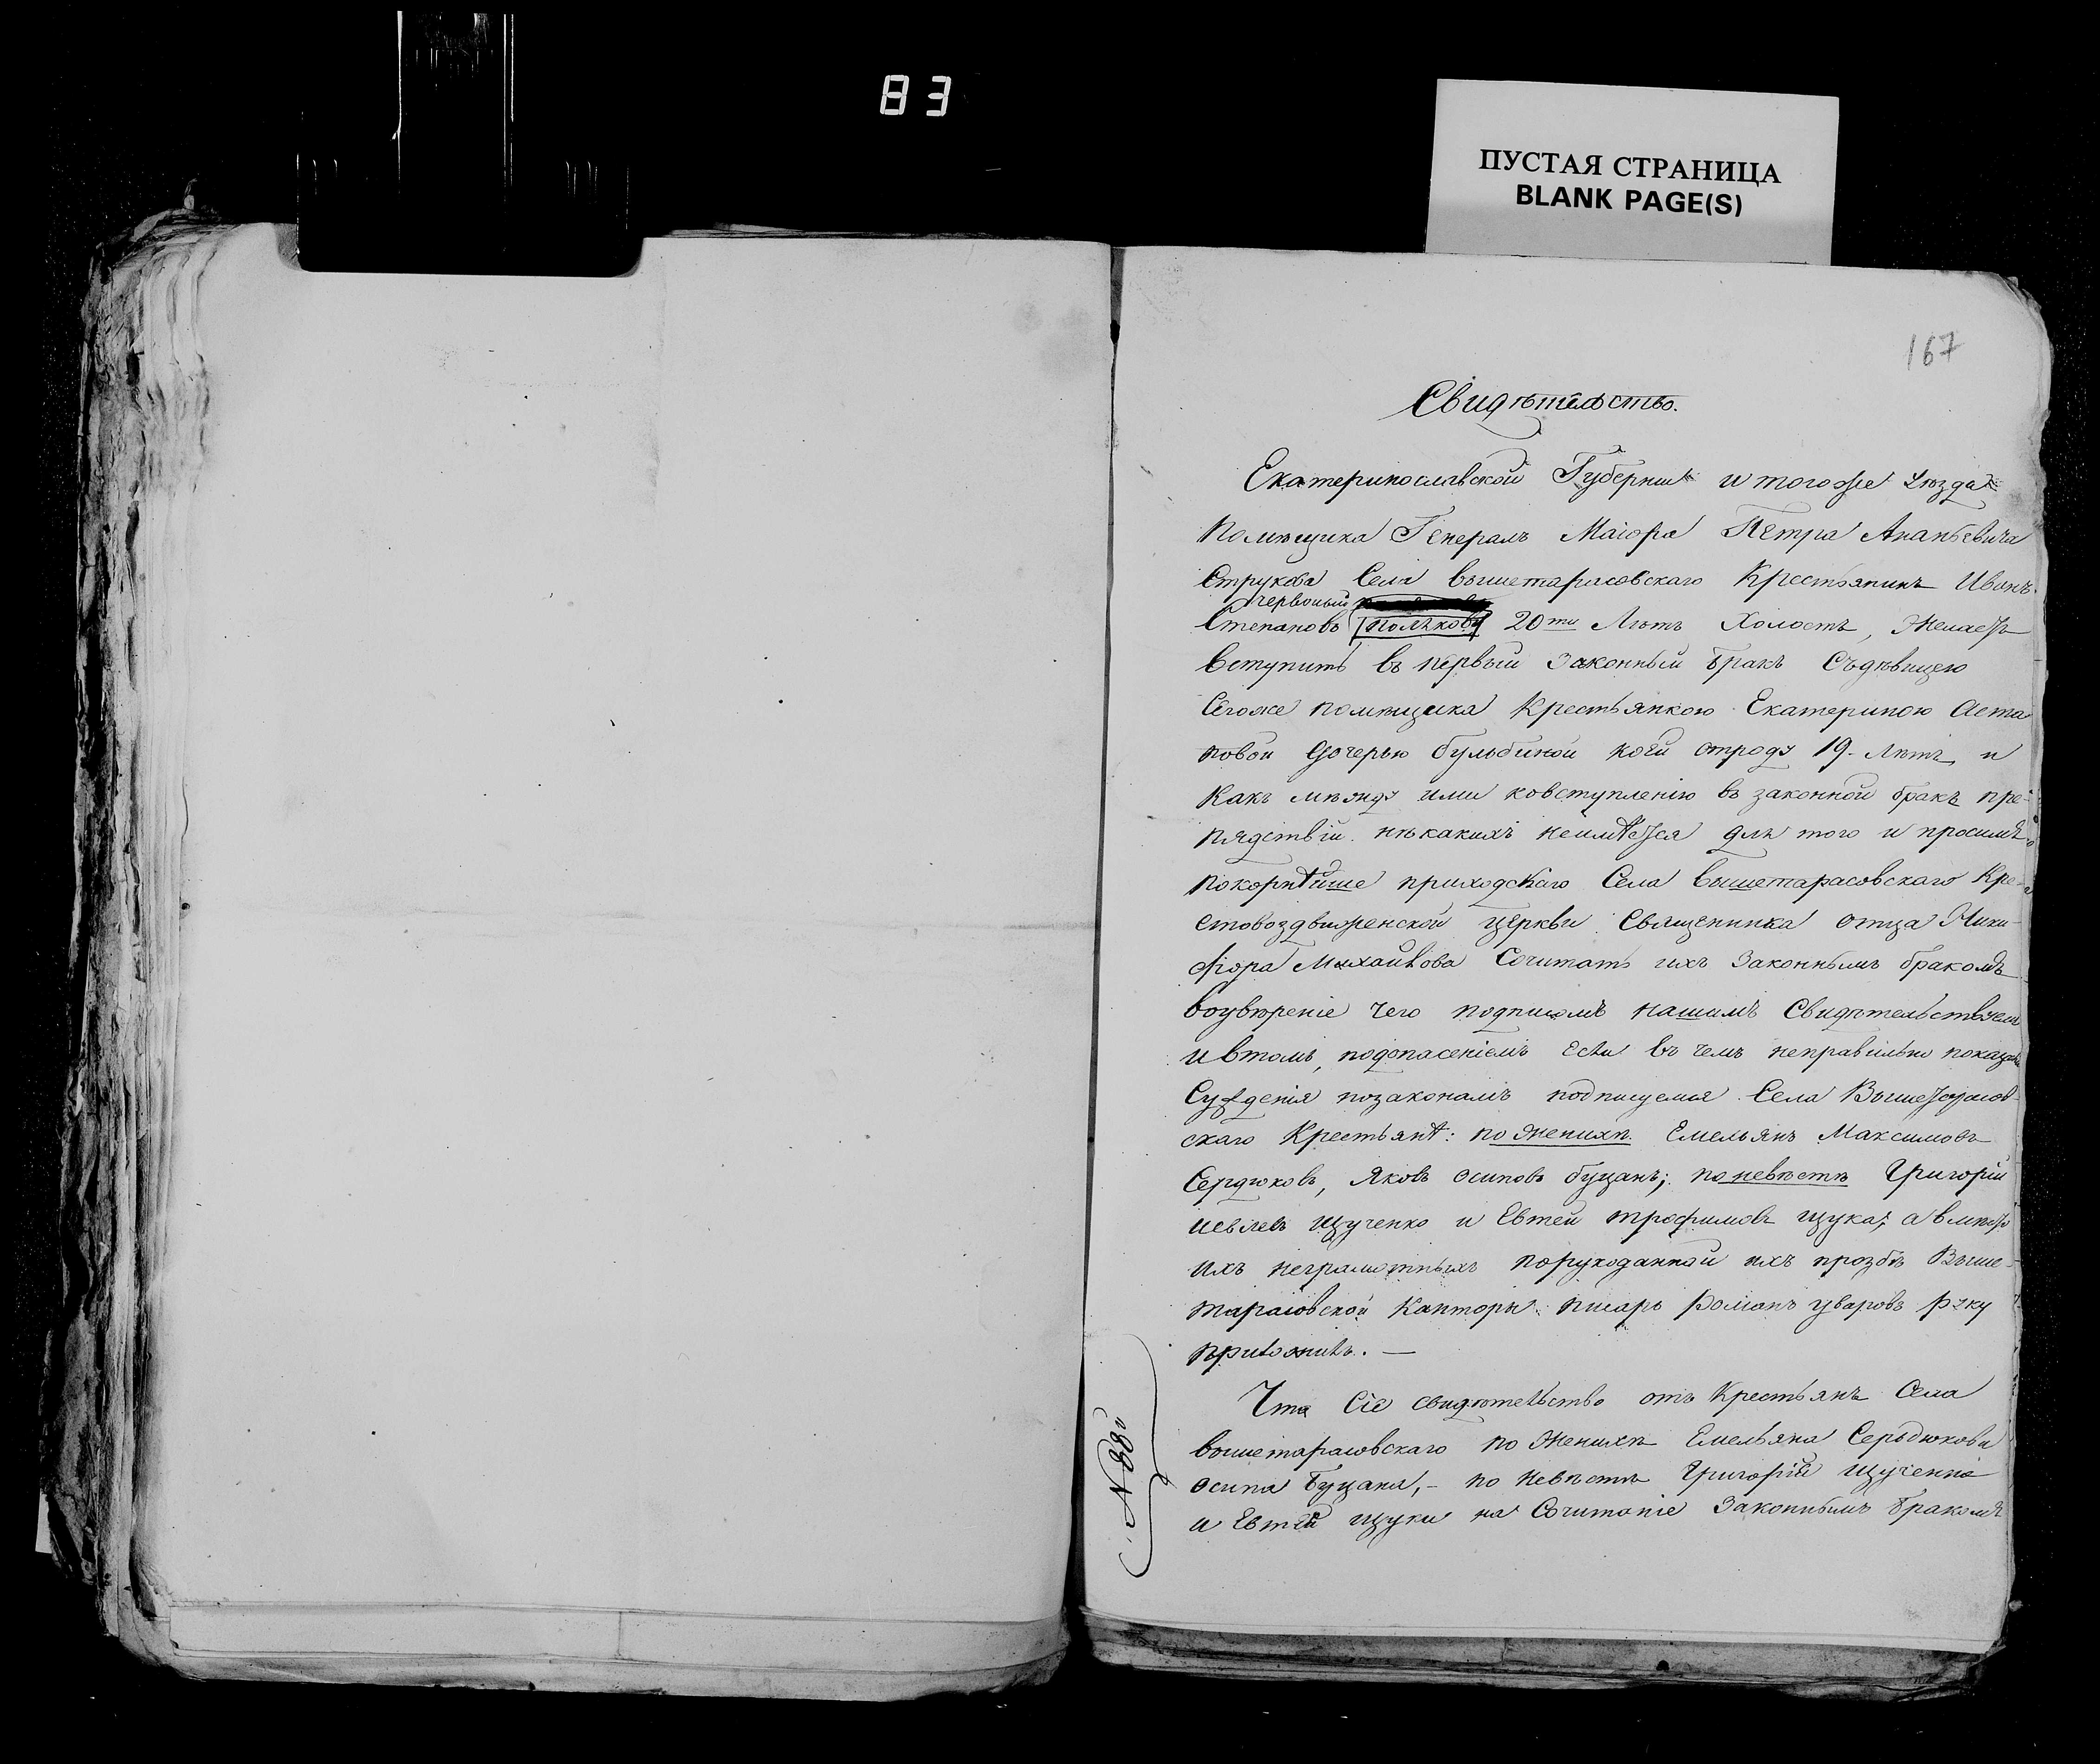 83
ПУСТАЯ СТРАНИЦА
BLANK PAGE(S)
167
Свидѣтельство.
Екатеринославской Губерніи и тогоже уѣзда
Помѣщика Генералъ Маіора Петра Ананьевича
Струкова Села вышетарасовскаго Крестьянинъ Иванъ
червоный
Степановъ Поляковъ 20ти Лѣтъ Холостъ, Желаетъ
вступить въ первый Законный бракъ Съдѣвицею
Сегоже помѣщика Крестьянкою Екатериною Аста
повой дочерью бульбиной коей отроду 19. лѣтъ, и
Какъ мѣжду ими ковступленію въ законной бракъ пре-
пядствій нѣкакихъ неимѣется для того и просимъ
покорнѣйше приходскаго Села вышетарасовскаго Кре-
стовоздвиженской церкви Священника отца Ники-
фора Михайлова Сочитать ихъ Законнымъ бракомъ
воувѣреніе чего подписомъ нашимъ Свидѣтельствуемъ
и втомъ, подопасеніемъ если въ чемъ неправильно
Сужденія позаконамъ подписуемся Села Вышетарасов-
скаго Крестьянѣ: по женихѣ Емельянъ Максимовъ
Сердюковъ, Яковъ Осиповъ буцанъ; по невѣстѣ Григорій
щученко и Евтей трофимовъ щука; а вмѣсто
ихъ неграмотныхъ порукоданной ихъ прозбѣ Выше-
тарасовской Канторы писарь Романъ уваровъ руку
приложилъ. —
Что Сіе свидѣтельство отъ Крестьянъ Села
вышетарасовскаго по Женихѣ Емельяна Сердюкова
осипа Буцана, - по Невѣстѣ Григорія щученка
и Евтей щуки на Сочитаніе Законнымъ бракомъ
№ 88й